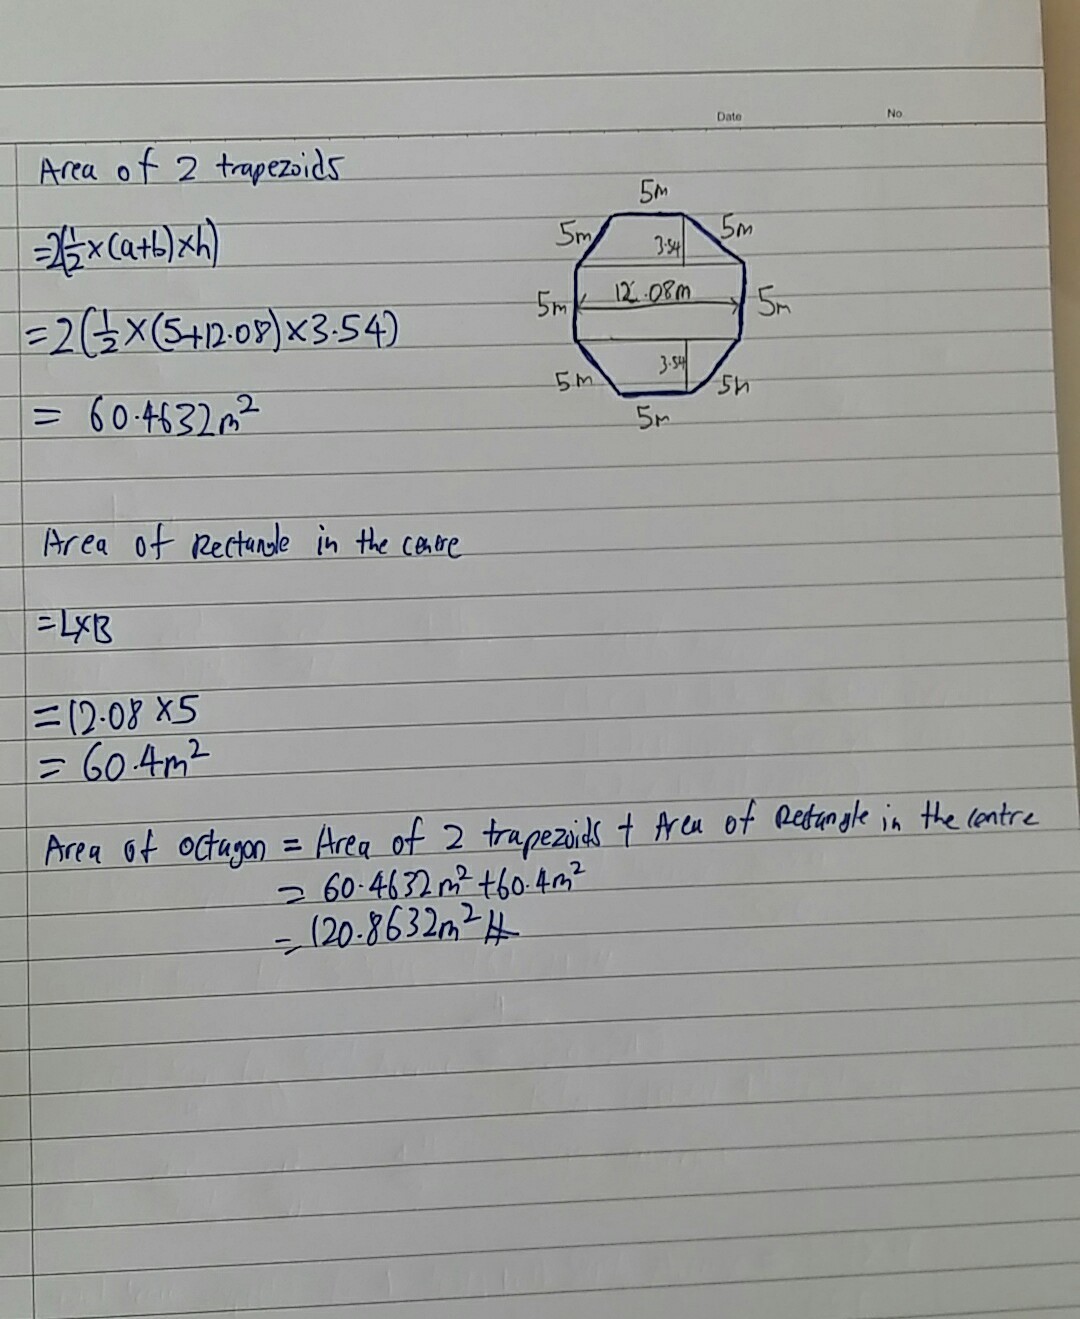 Date No
Area of 2 trapezoids
=2(1/2×(a+b)×h)
=2(1/2×(5+12.08)×3.54)
= 60.4632m²
5m
5m 5m
3.54
5m 12.08m 5m
3.54
5m 5m
5m
Area of Rectangle in the centre
=L×B
=12.08×5
= 60.4m²
Area of octagon = Area of 2 trapezoids + Area of Rectangle in the centre
= 60.4632m²+60.4m²
= 120.8632m²